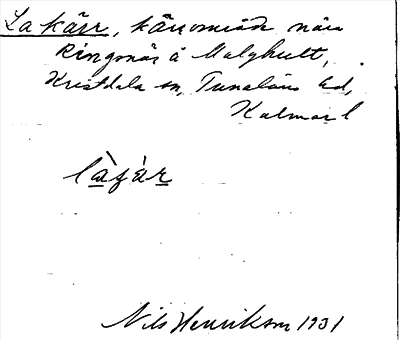 La kärr, kärrområde nära
Ringsnäs å Malghult,
Kristdala sn, Tunaläns hd,
Kalmar l
Nils Henrikson 1931